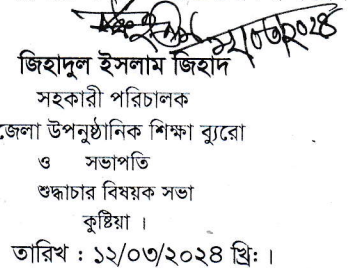 জিহাদুল ইসলাম জিহাদ
সহকারী পরিচালক
জেলা উপনুষ্ঠানিক শিক্ষা ব্যুরো
ও সভাপতি
শুদ্ধাচার বিষয়ক সভা
কুষ্টিয়া ।
তারিখ : ১২/০৩/২০২৪ খ্রি: ।